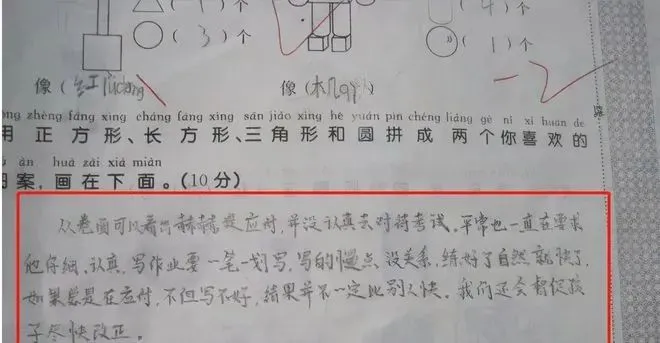 (4)个
(3)个
(1)个
像(红lǜdēng)
像(机qì)
-2
zhèng fāng xíng cháng fāng xíng sān jiǎo xíng hé yuán pīn chéng liǎng gè nǐ xǐ huan de
用正方形、长方形、三角形和圆拼成两个你喜欢的
àn huà zài xià miàn
图案,画在下面。(10分)
从卷面可以看出赫赫是应付,并没认真去对待考试。平常也一直在要求
他仔细、认真,写作业要一笔一划写,写的慢点没关系,练好了自然就快了,
如果总是在应付,不但写不好,结果并不一定比别人快。我们还会督促孩
子尽快改正。